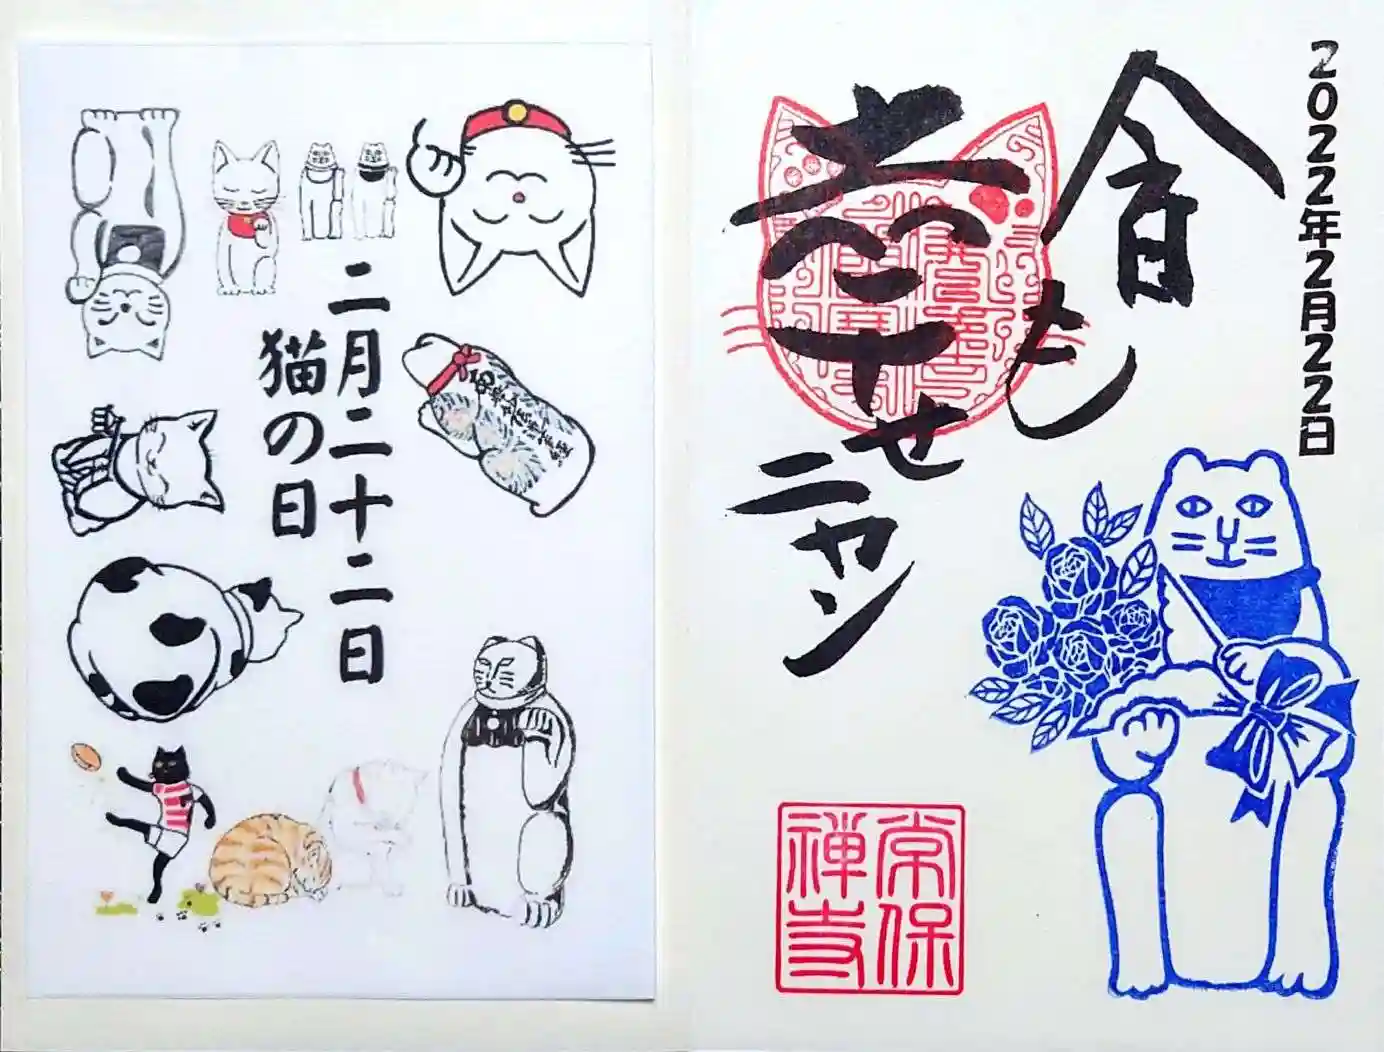 2022年2月22日
今日も
幸せ
ニャン
常保
禅寺
二月二十二日
猫の日